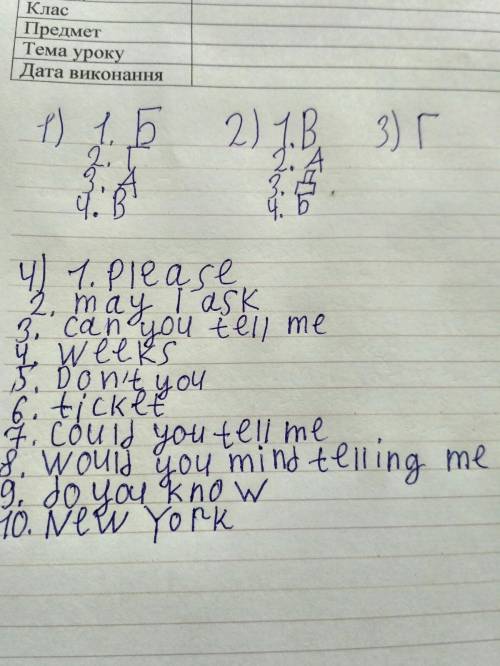 Клас
Предмет
Тема уроку
Дата виконання
1) 1. Б 2) 1. В 3) Г
2. Г 2. А
3. А 3. Д
4. В 4. Б
4) 1. please
2. may I ask
3. can you tell me
4. weeks
5. Don't you
6. ticket
7. could you tell me
8. would you mind telling me
9. do you know
10. New York